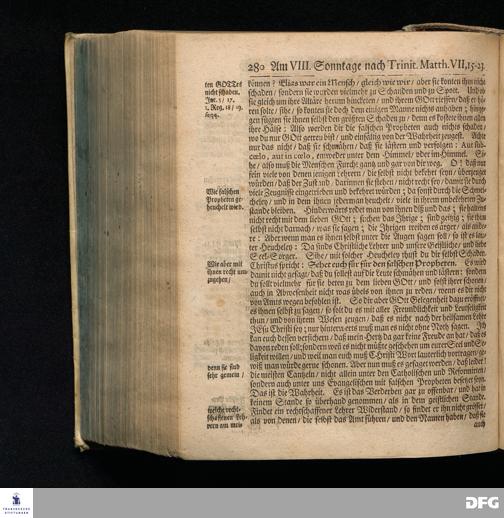 280 Am VIII. Sonntage nach Trinit. Matth. VII, 15-23.
ten GOTTes
nicht schaden.
Jac. 5/ 17.
1. Reg. 18/ 19.
seqq.
Wie falschen
Propheten ge-
heuchelt wird.
Wie aber mit
ihnen recht um-
zugehen/
denn sie sind
sehr gemein/
welche recht-
schaffenen Leh-
rern am mei-
können? Elias war ein Mensch/ gleich wie wir/ aber sie konten ihm nicht
schaden/ sondern sie wurden vielmehr zu Schanden und zu Spott. Und ob
sie gleich um ihre Altäre herum hinckten/ und ihrem Gott rieffen/ daß er hö-
ren solte/ sihe/ so konten sie doch dem einigen Manne nichts anhaben; hinge-
gen fügten sie ihnen selbst den größten Schaden zu/ denn es kostete ihnen allen
ihre Hälse: Also werden dir die falschen Propheten auch nichts schaden/
wo du nur GOtt getreu bist/ und einfältig von der Wahrheit zeugest. Achte
nur das nicht/ daß sie schmähen/ daß sie lästern und verfolgen: Aut sub
cœlo, aut in cœlo, entweder unter dem Himmel/ oder im Himmel. Si-
he/ also muß die Menschen Furcht gantz und gar von dir weg. O! daß nur
sein viele von denen jenigen Lehrern/ die selbst nicht bekehret seyn/ überzeuget
würden/ daß der Zustand/ darinnen sie stehen/ nicht recht sey/ damit sie durch
viele Zeugnisse eingetrieben und bekehret würden; da sonst durch die Schmei-
cheley/ und in dem ihnen jederman heuchelt/ viele in ihrem unbekehrten Zu-
stande bleiben. Hinderwärts redet man von ihnen diß und das; sie halten
nicht recht mit dem lieben GOtt; suchen das Ihrige; sind geitzig; sie thun
selbst nicht darnach/ was sie sagen; die Ihrigen treiben es ärger/ als ande-
re: Aber wenn man es ihnen selbst unter die Augen sagen soll/ so ist es lau-
ter Heucheley: Da sinds Christliche Lehrer und unsere Geistliche/ und liebe
Seel-Sorger. Sihe/ mit solcher Heucheley thust du dir selbst Schaden.
Christus spricht: Sehet euch für für den falschen Propheten. Es wird
damit nicht gesagt/ daß du sollest auf die Leute schmähen und lästern; sondern
du solt vielmehr für sie beten zu dem lieben GOtt/ und sonst ihrer schonen/
auch in Abwesenheit nicht was übels von ihnen zu reden/ wenn es dir nicht
von Amts wegen befohlen ist. So dir aber GOtt Gelegenheit dazu eröffnet/
es ihnen selbst zu sagen/ so solt du es mit aller Freundlichkeit und Leutseligkeit
thun/ und von ihrem Wesen zeugen/ daß es nicht nach der heilsamen Lehre
JEsu Christi sey; nur hinterwerts muß man es nicht ohne Noth sagen. Ich
kan euch dessen versichern/ daß mein Hertz da gar keine Freude an hat/ daß es
davon reden soll; sondern weil es nicht müste geschehen um eurer Seel und Se-
ligkeit willen/ und weil man euch muß Christi Wort lauterlich vortragen/ ge-
wiß man würde gerne schonen. Aber nun muß es gesaget werden/ daß leider!
die meisten Cantzeln/ nicht allein unter den Catholischen und Reformirten/
sondern auch unter uns Evangelischen mit falschen Propheten besetzet seyn.
Das ist die Wahrheit. Es ist das Verderben gar zu offenbar/ und hat in
keinem Stande so überhand genommen/ als in dem geistlichen Stande.
Findet ein rechtschaffener Lehrer Widerstand/ so findet er ihn nicht grösser/
als von denen/ die selbst das Amt führen/ und den Namen haben/ daß sie
auch
FRANCKESCHE
STIFTUNGEN
DFG